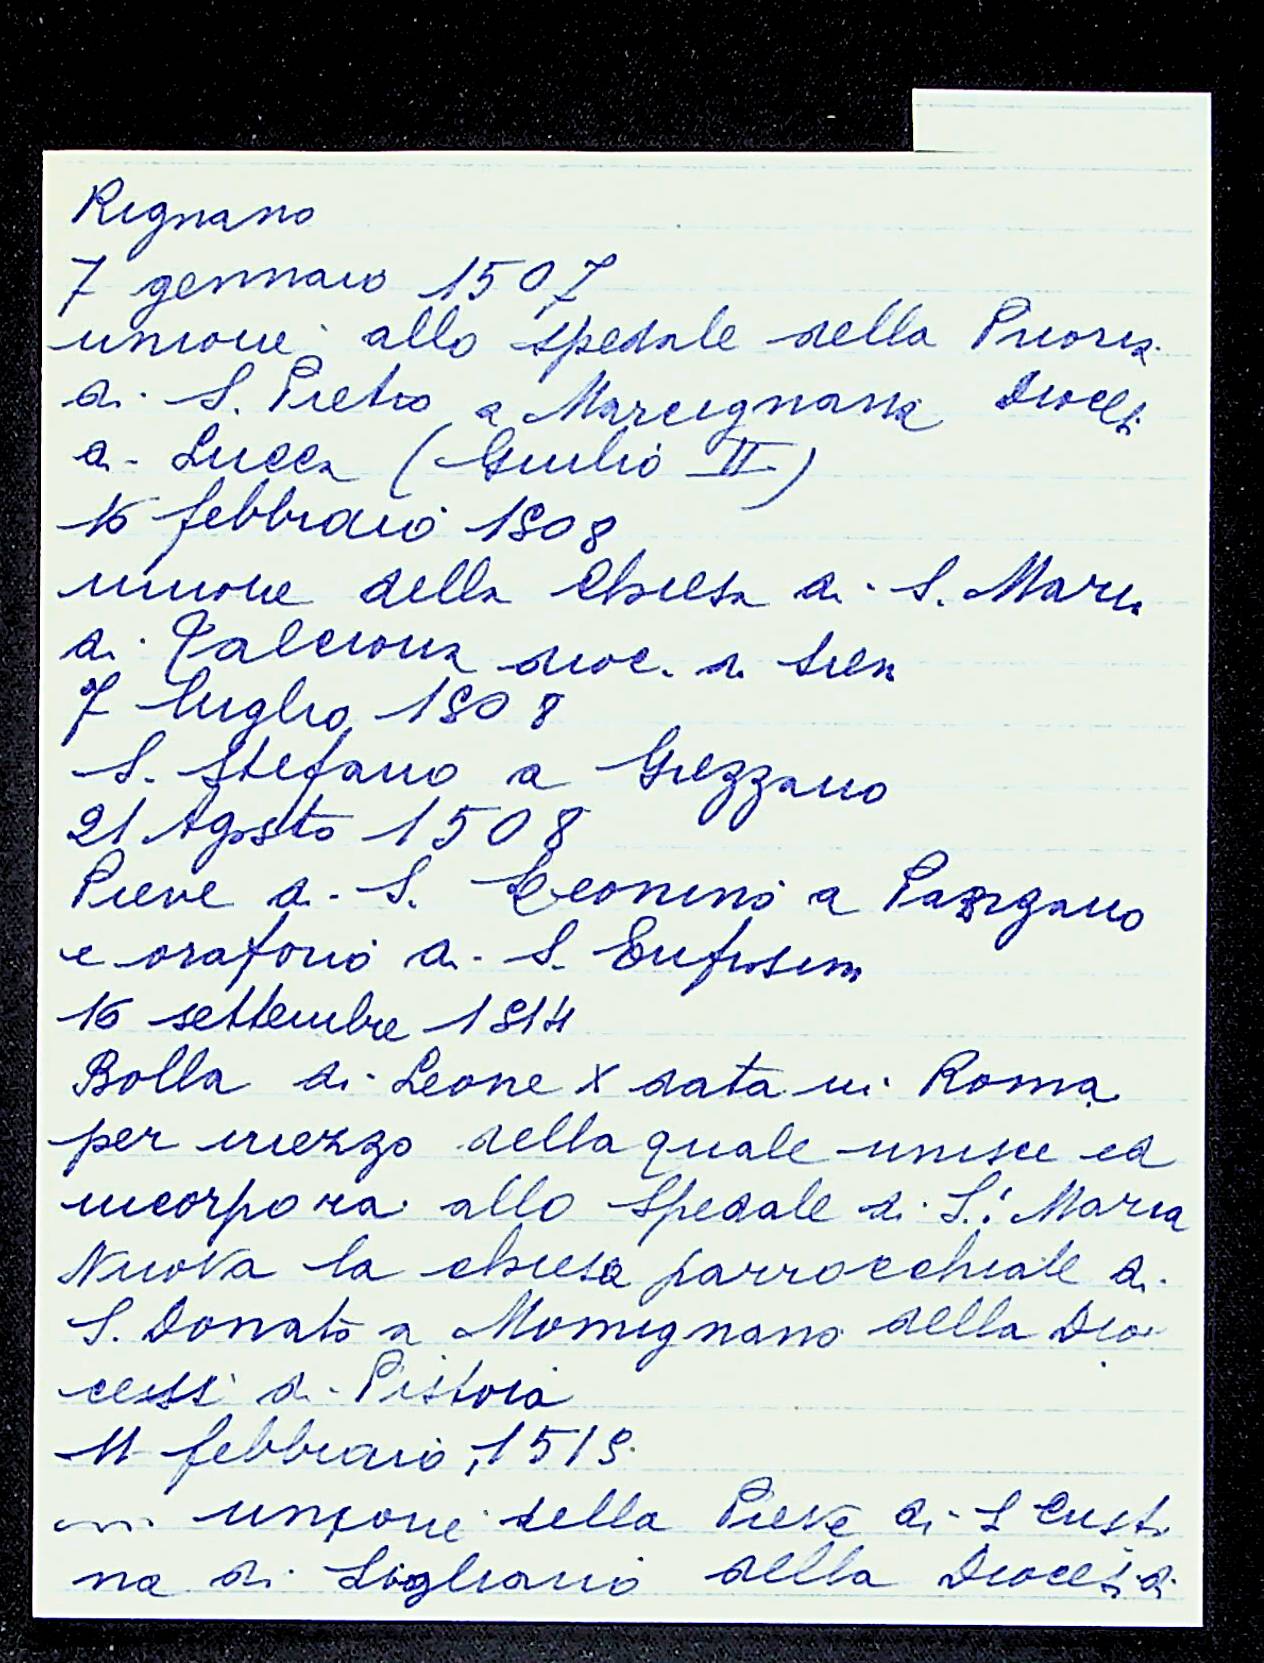 Rignano
7 gennaio 1507
unione allo spedale della Prioria
di S. Pietro a Marcignana Diocesi
di Lucca (Giulio II)
16 febbraio 1508
unione della Chiesa di S. Maria
di Falciona dioc. di
7 luglio 1508
S. Stefano a Grezzano
21 Agosto 1508
Pieve di S. Leonino a Panzano
e oratorio di S. Eufrosino
16 settembre 1514
Bolla di Leone X data in Roma
per mezzo della quale unisce ed
incorpora allo Spedale di S. Maria
Nuova la chiesa parrocchiale di
S. Donato a Momignano della Dio
cesi di Pistoia
11 febbraio 1515
unione della Pieve di S Cristi
na di della Diocesi di